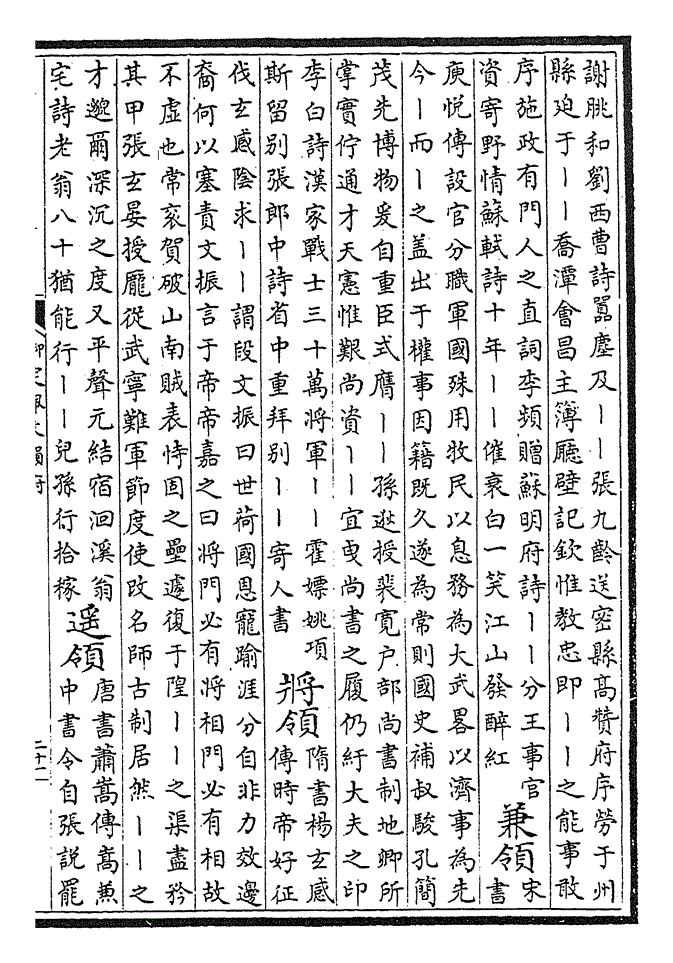 謝朓和劉西曹詩囂塵及｜｜張九齡送密縣高贊府序勞于州
縣迫于｜｜喬潭會昌主簿廳壁記欽惟教忠即｜｜之能事敢
序施政有門人之直詞李頻贈蘇明府詩｜｜分王事官
資寄野情蘇軾詩十年｜｜催衰白一笑江山發醉紅
兼領
宋
書
庾悅傳設官分職軍國殊用牧民以息務為大武畧以濟事為先
今｜而｜之盖出于權事因籍既久遂為常則國史補叔駿孔簡
茂先博物爰自重臣式膺｜｜孫逖授裴寛户部尚書制地卿所
掌實佇通才天憲惟艱尚資｜｜宜曳尚書之履仍紆大夫之印
李白詩漢家戰士三十萬將軍｜｜霍嫖姚項
斯留别張郎中詩省中重拜别｜｜寄人書
將領
隋書楊玄感
傳時帝好征
伐玄感陰求｜｜謂段文振曰世荷國恩寵踰涯分自非力效邊
裔何以塞責文振言于帝帝嘉之曰將門必有將相門必有相故
不虛也常衮賀破山南賊表恃固之壘遽復于隍｜｜之渠盡矜
其甲張玄晏授龐從武寧難軍節度使改名師古制居然｜｜之
才邈爾深沉之度又平聲元結宿洄溪翁
宅詩老翁八十猶能行｜｜兒孫行拾稼
遥領
唐書蕭嵩傳嵩兼
中書令自張說罷
御定佩文韻府